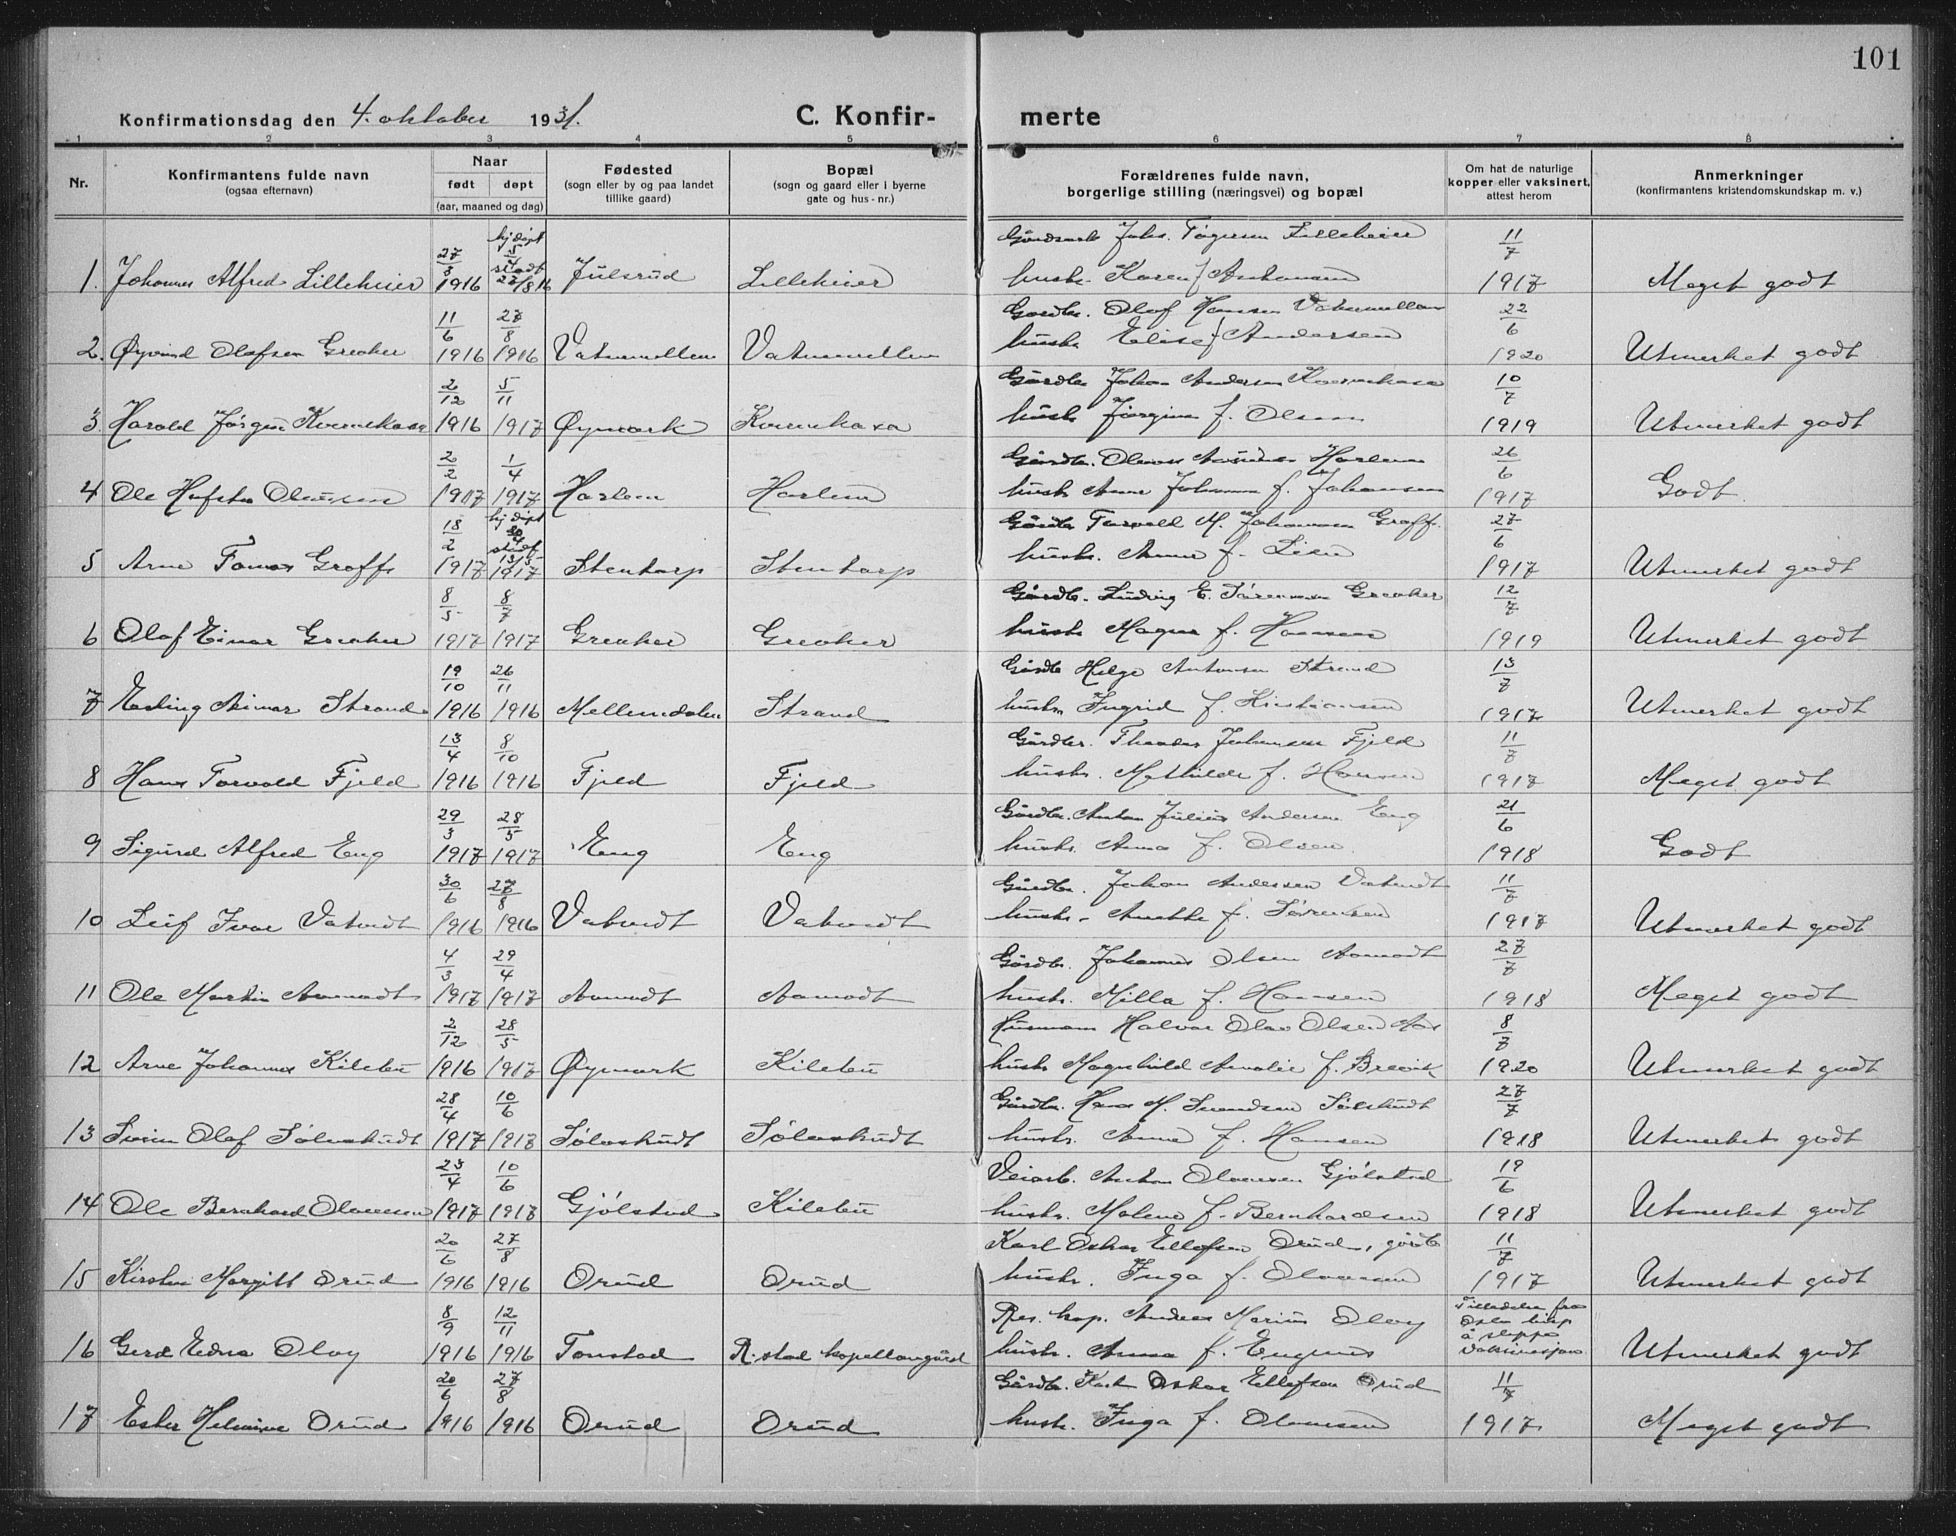 101
Konfirmationsdag den 4. oktober 1931.
C. Konfir-merte
1 2 3 4 5 6 7 8
Nr.
Konfirmantens fulde navn
(ogsaa efternavn)
Naar
født døpt
(aar, maaned og dag)
Fødested
(sogn eller by og paa landet
tillike gaard)
Bopæl
(sogn og gaard eller i byerne
gate og hus-nr.)
Forældrenes fulde navn,
borgerlige stilling (næringsvei) og bopæl
Om hat de naturlige
kopper eller vaksinert,
attest herom
Anmerkninger
(konfirmantens kristendomskundskap m. v.)
hj. døpt
27/3 5/4 Johs. Lilleheier 11/7
1. Johannes Alfred Lilleheier 1916 27/8 16 Julsrud Lilleheier hustr. Karen f. 1917 Meget godt
11/6 27/8 Gårdbr. Olaf Hansen 22/6
2. Øyvind Olafsen Greaker 1916 1916 hustr. Elise f. Andersen 1920 Utmerket godt
2/12 5/11 Gårdbr. Johan Andersen 10/7
3. Harald Jørgen 1916 1917 Øymark hustr. Jørgine f. Olsen 1919 Utmerket godt
2/2 1/4 Gårdbr. Harlem 26/6
4 Ole 1917 1917 Harlem Harlem hustr. Anne Johanne f. Johansen 1917 Godt.
18/2 hj. døpt Gårdbr. Torvald M. Johansen Graff. 27/6
5 Arne Tomas Graff 1917 13/5 1917 Stentorp Stentorp hustr. Anne f. Lien 1917 Utmerket godt
8/5 8/7 Gårdbr. Ludvig E. Sørensen Greaker 12/7
6 Olaf Einar Greaker 1917 1917 Greaker Greaker hustr. Magna f. Hansen 1919 Utmerket godt
19/10 26/11 Gårdbr. Helge Antonsen Strand 13/7
7 Erling Strand 1916 1916 Strand hustr. Ingrid f. Kristiansen 1917 Utmerket godt
13/4 8/10 Gårdbr. Johansen Fjeld 11/7
8 Hans Torvald Fjeld 1916 1916 Fjeld Fjeld hustr. Mathilde f. Hansen 1917 Meget godt
29/3 28/5 Gårdbr. Anton Julius Andersen Eng 21/6
9 Sigurd Alfred Eng 1917 1917 Eng Eng hustr. Anna f. Olsen. 1918 Godt
30/6 27/8 Gårdbr. Johan Andersen Vatvedt 11/7
10 Leif Ivar Vatvedt 1916 1916 Vatvedt Vatvedt hustr. Anette f. Sørensen 1917 Utmerket godt
4/3 29/4 Gårdbr. Johannes Olsen Aamodt 27/7
11 Ole Martin Aamodt 1917 1917 Aamodt Aamodt hustr. Milla f. Hansen 1918 Meget godt
2/12 28/5 Husmann Halvor Olav Olsen 8/7
12 Arne Johannes Kilebu 1916 1917 Øymark Kilebu hustr. Magnhild Amalie f. Brevik 1920 Utmerket godt
28/4 10/6 Gårdbr. Hans M. Svendsen Sølvskudt 27/7
13 Svein Olaf Sølvskudt 1917 1917 Sølvskudt Sølvskudt hustr. Anne f. Hansen 1918 Utmerket godt
23/4 10/6 Veiarb. Anton Olaussen Gjølstad 19/6
14 Ole Bernhard Olaussen 1917 1917 Gjølstad Kilebu hustr. Malene f. Bernhardsen 1918 Utmerket godt
20/6 27/8 Karl Oskar Ellefsen Orud, gårdb. 11/7
15 Kirsten Margitt Orud 1916 1916 Orud Orud hustr. Inga f. Olaussen 1917 Utmerket godt
8/9 12/11 Res. kap. Andreas Marius Tilladelse fra
16 Gerd Edna 1916 1916 Tonstad R.stad kapellangård hustr. Anna f. Eugenes Oslo bisp å slippe vaksinasjon Utmerket godt
20/6 27/8 Gårdbr. Karl Oskar Ellefsen Orud 11/7
17 Ester Orud 1916 1916 Orud Orud hustr. Inga f. Olaussen 1917 Meget godt